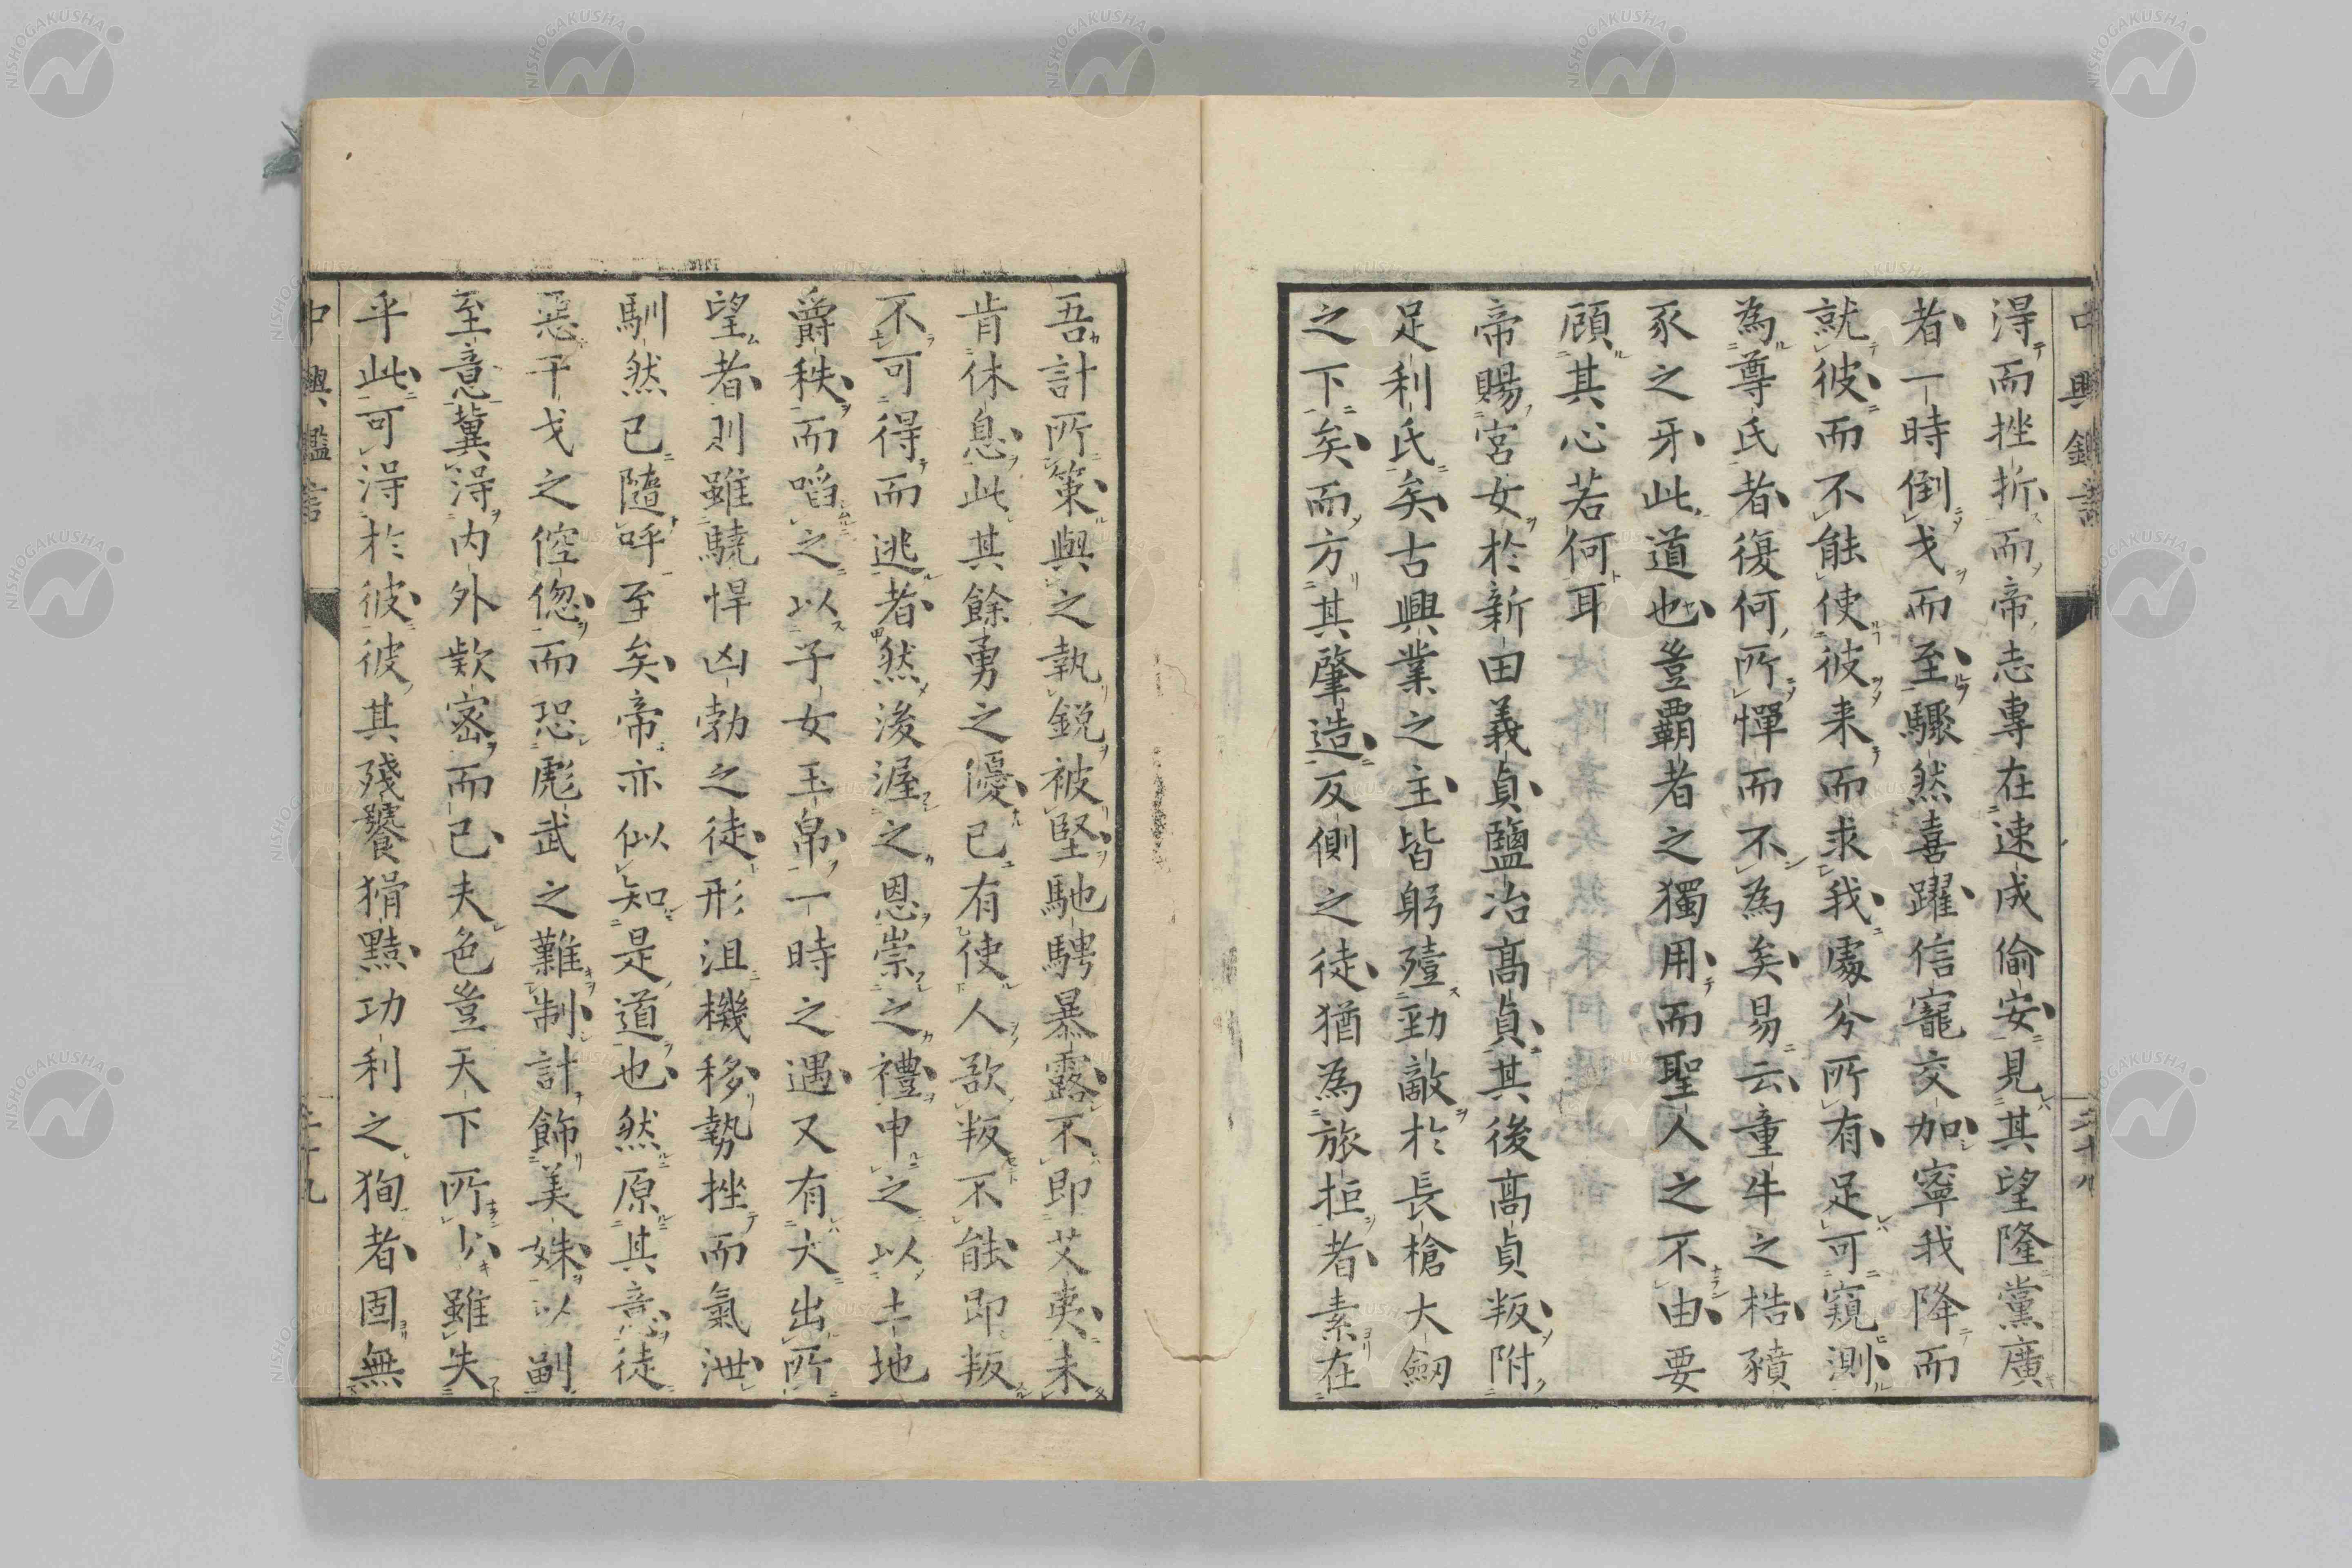 中興鑑言
二十八
得而挫折而帝志專在速成偷安見其望隆黨廣
者一時倒戈而至驟然喜躍信寵交加寧我降而
就彼而不能使彼来而求我處分所有足可窺測
為尊氏者復何所憚而不為矣易云童牛之梏豶
豕之牙此道也豈覇者之獨用而聖人之不由要
顧其心若何耳
帝賜宮女於新田義貞鹽冶髙貞其後髙貞叛附
足利氏矣古興業之主皆躬殪勁敵於長槍大劔
之下矣而方其肇造反側之徒猶為旅拒者素在
吾計所策與之執鋭被堅馳騁暴露不即艾夷未
肯休息此其餘勇之優已有使人欲叛不能即叛
不可得而逃者然後渥之恩崇之禮申之以土地
爵秩而啗之以子女玉帛一時之遇又有大出所
望者則雖驍悍凶勃之徒形沮機移勢挫而氣泄
馴然已隨呼至矣帝亦似知是道也然原其意徒
惡干戈之倥偬而恐彪武之難制計飾美姝以副
至意冀得内外欵密而已夫色豈天下所少雖失
乎此可得於彼彼其殘饕猾黠功利之狥者固無
中興鑑言
二十九
NISHOGAKUSHA